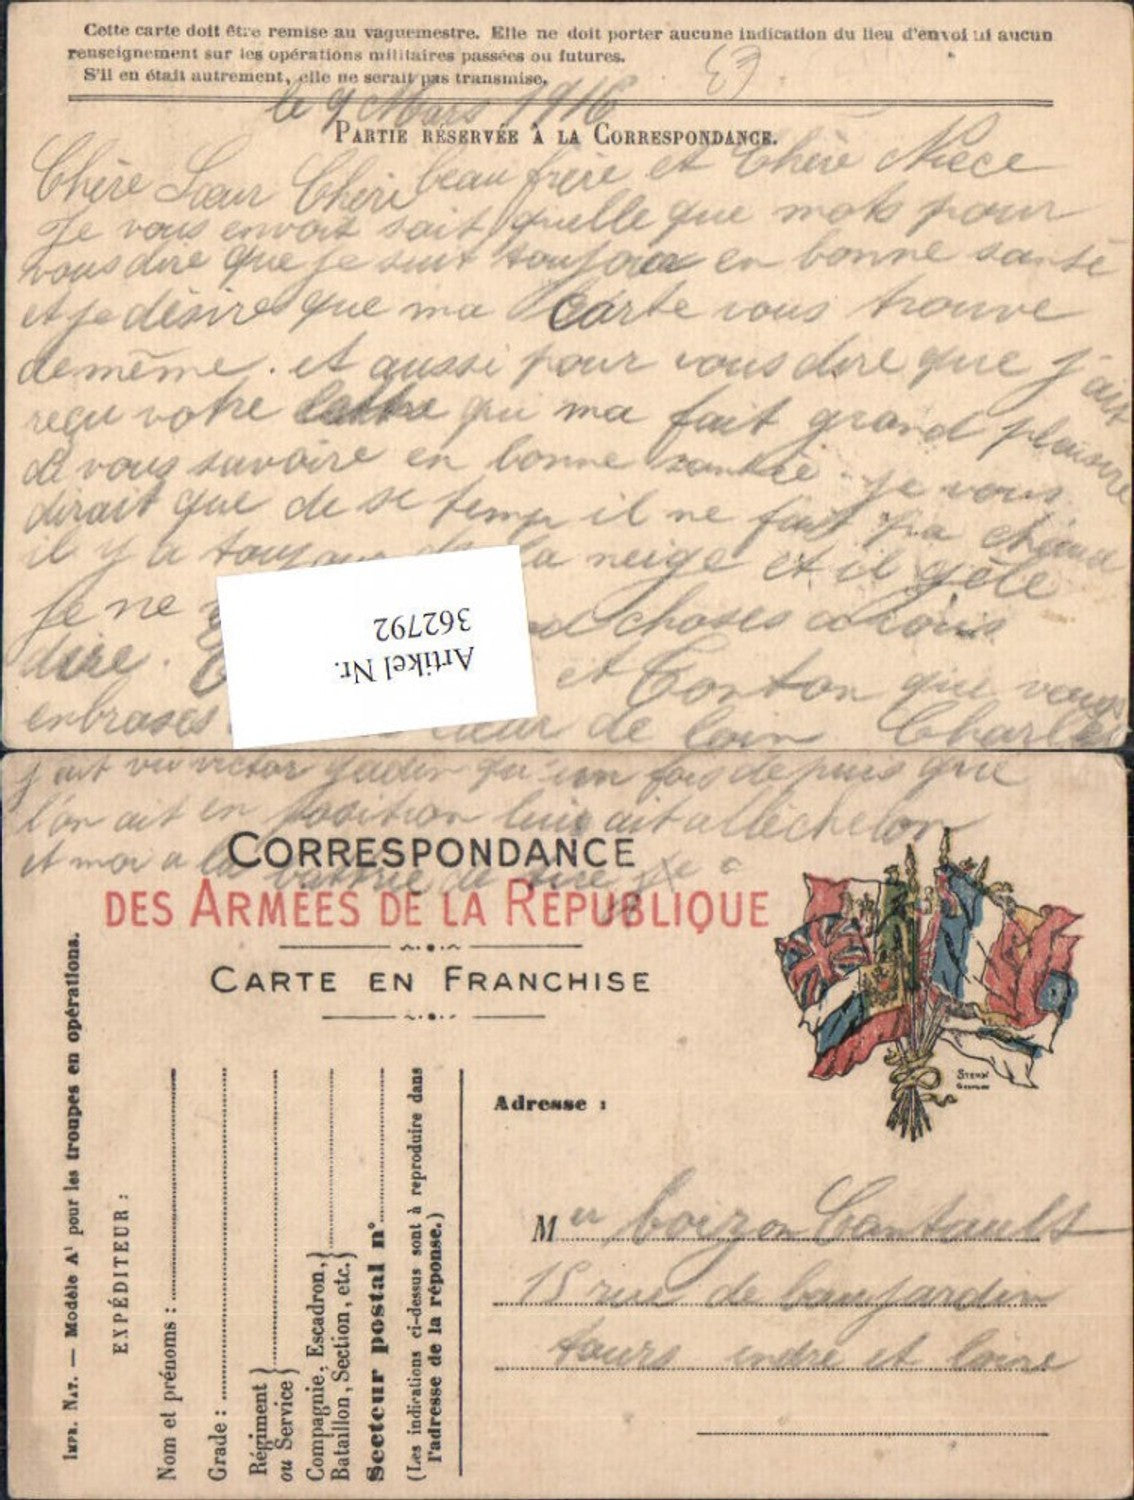 Cette carte doit être remise au vaguemestre. Elle ne doit porter aucune indication du lieu d'envoi ni aucun
renseignement sur les opérations militaires passées ou futures.
S'il en était autrement, elle ne serait pas transmise.
le 9 Mars 1916
PARTIE RÉSERVÉE À LA CORRESPONDANCE.
Chère Sœur Chèri beau frère et Chère Niece
Je vous envoit sait quelle que mots pour
vous dire que je suit toujour en bonne santé
et je désire que ma Carte vous trouve
de même. et aussi pour vous dire que j'ait
reçu votre lettre qui ma fait grand plaisire
de vous savoire en bonne santée. je vous
dirait que de se temp il ne fait pa chaud
il y a la neige et il gêle
Je ne choses a vous
dire. et Tonton qui vous
enbrases cœur de loin Charles
j'ait vu victor qu'un fois depuis que
l'on ait en position lui ait a l'échelon
et moi a la battrie de tire
CORRESPONDANCE
DES ARMÉES DE LA RÉPUBLIQUE
CARTE EN FRANCHISE
IMPR. NAT. — Modèle A¹ pour les troupes en opérations.
EXPÉDITEUR :
Nom et prénoms :
Grade :
Régiment
ou Service
Compagnie, Escadron,
Bataillon, Section, etc.
Secteur postal n°
(Les indications ci-dessus sont à reproduire dans
l'adresse de la réponse.)
STERN
Adresse :
Mer boizon Cantault
15 rue de beaujardin
tours indre et loire
Artikel Nr.
362792